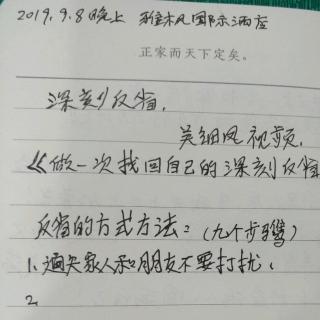 2019.9.8晚上 雅枫国际酒店
正家而天下定矣。
深刻反省,
吴细风视频,
《做一次找回自己的深刻反省
反省的方式方法：(九个步骤)
1、通关家人和朋友不要打扰、
2